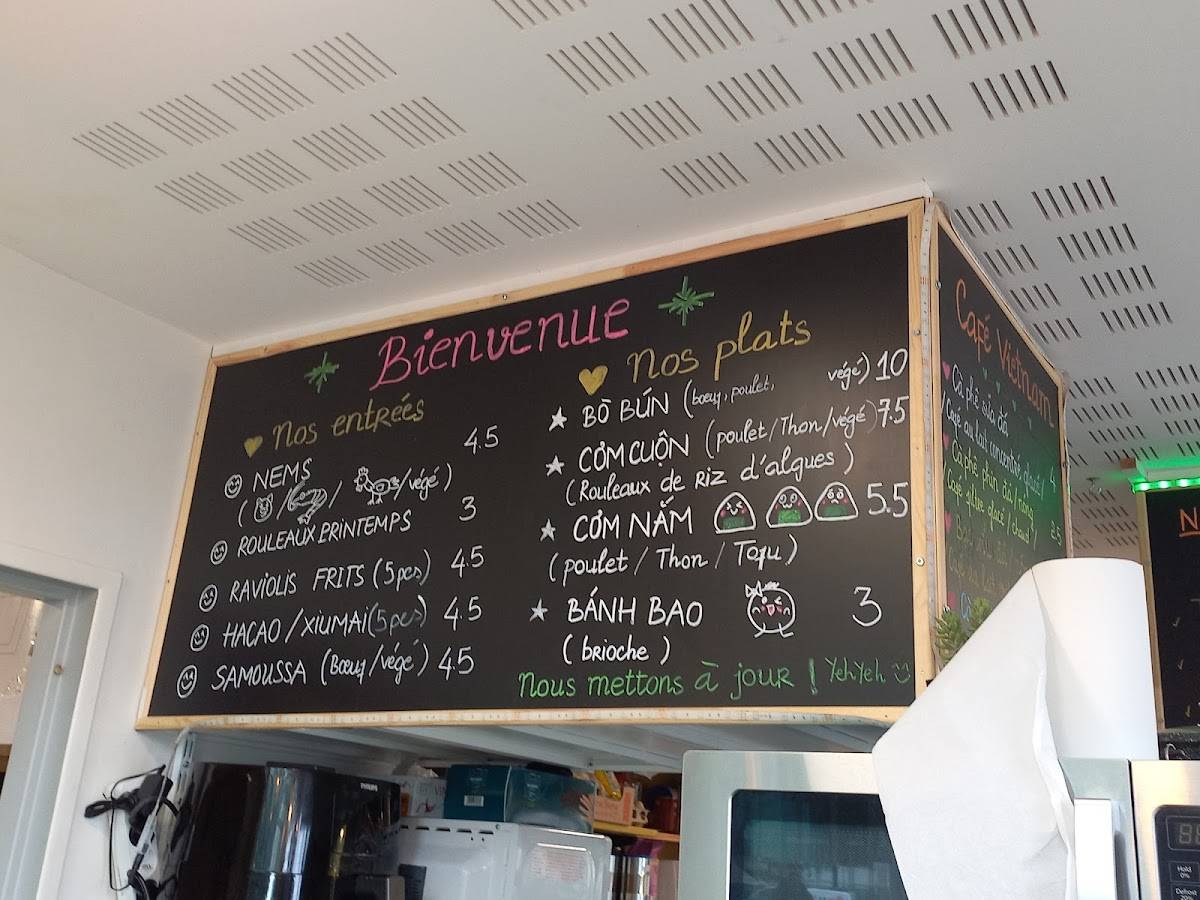 Bienvenue
Nos entrées
NEMS 4.5
( / / /végé)
ROULEAUX PRINTEMPS 3
RAVIOLIS FRITS (5pcs) 4.5
HACAO/XIUMAI(5pcs) 4.5
SAMOUSSA (Bœuf/végé) 4.5
Nos plats
BÒ BÚN (bœuf, poulet, végé) 10
CƠM CUỘN (poulet/Thon/végé) 7.5
(Rouleaux de Riz d'algues)
CƠM NẮM 5.5
(poulet / Thon / Tofu)
BÁNH BAO 3
(brioche)
Nous mettons à jour ! YehYeh
Café Vietnam
Cà phê sữa đá
(Café au lait concentré glacé) 4
Cà phê phin đá/nóng
(Café filtre glacé/chaud) 2.5
PHILIPS
Hold
0%
Defrost